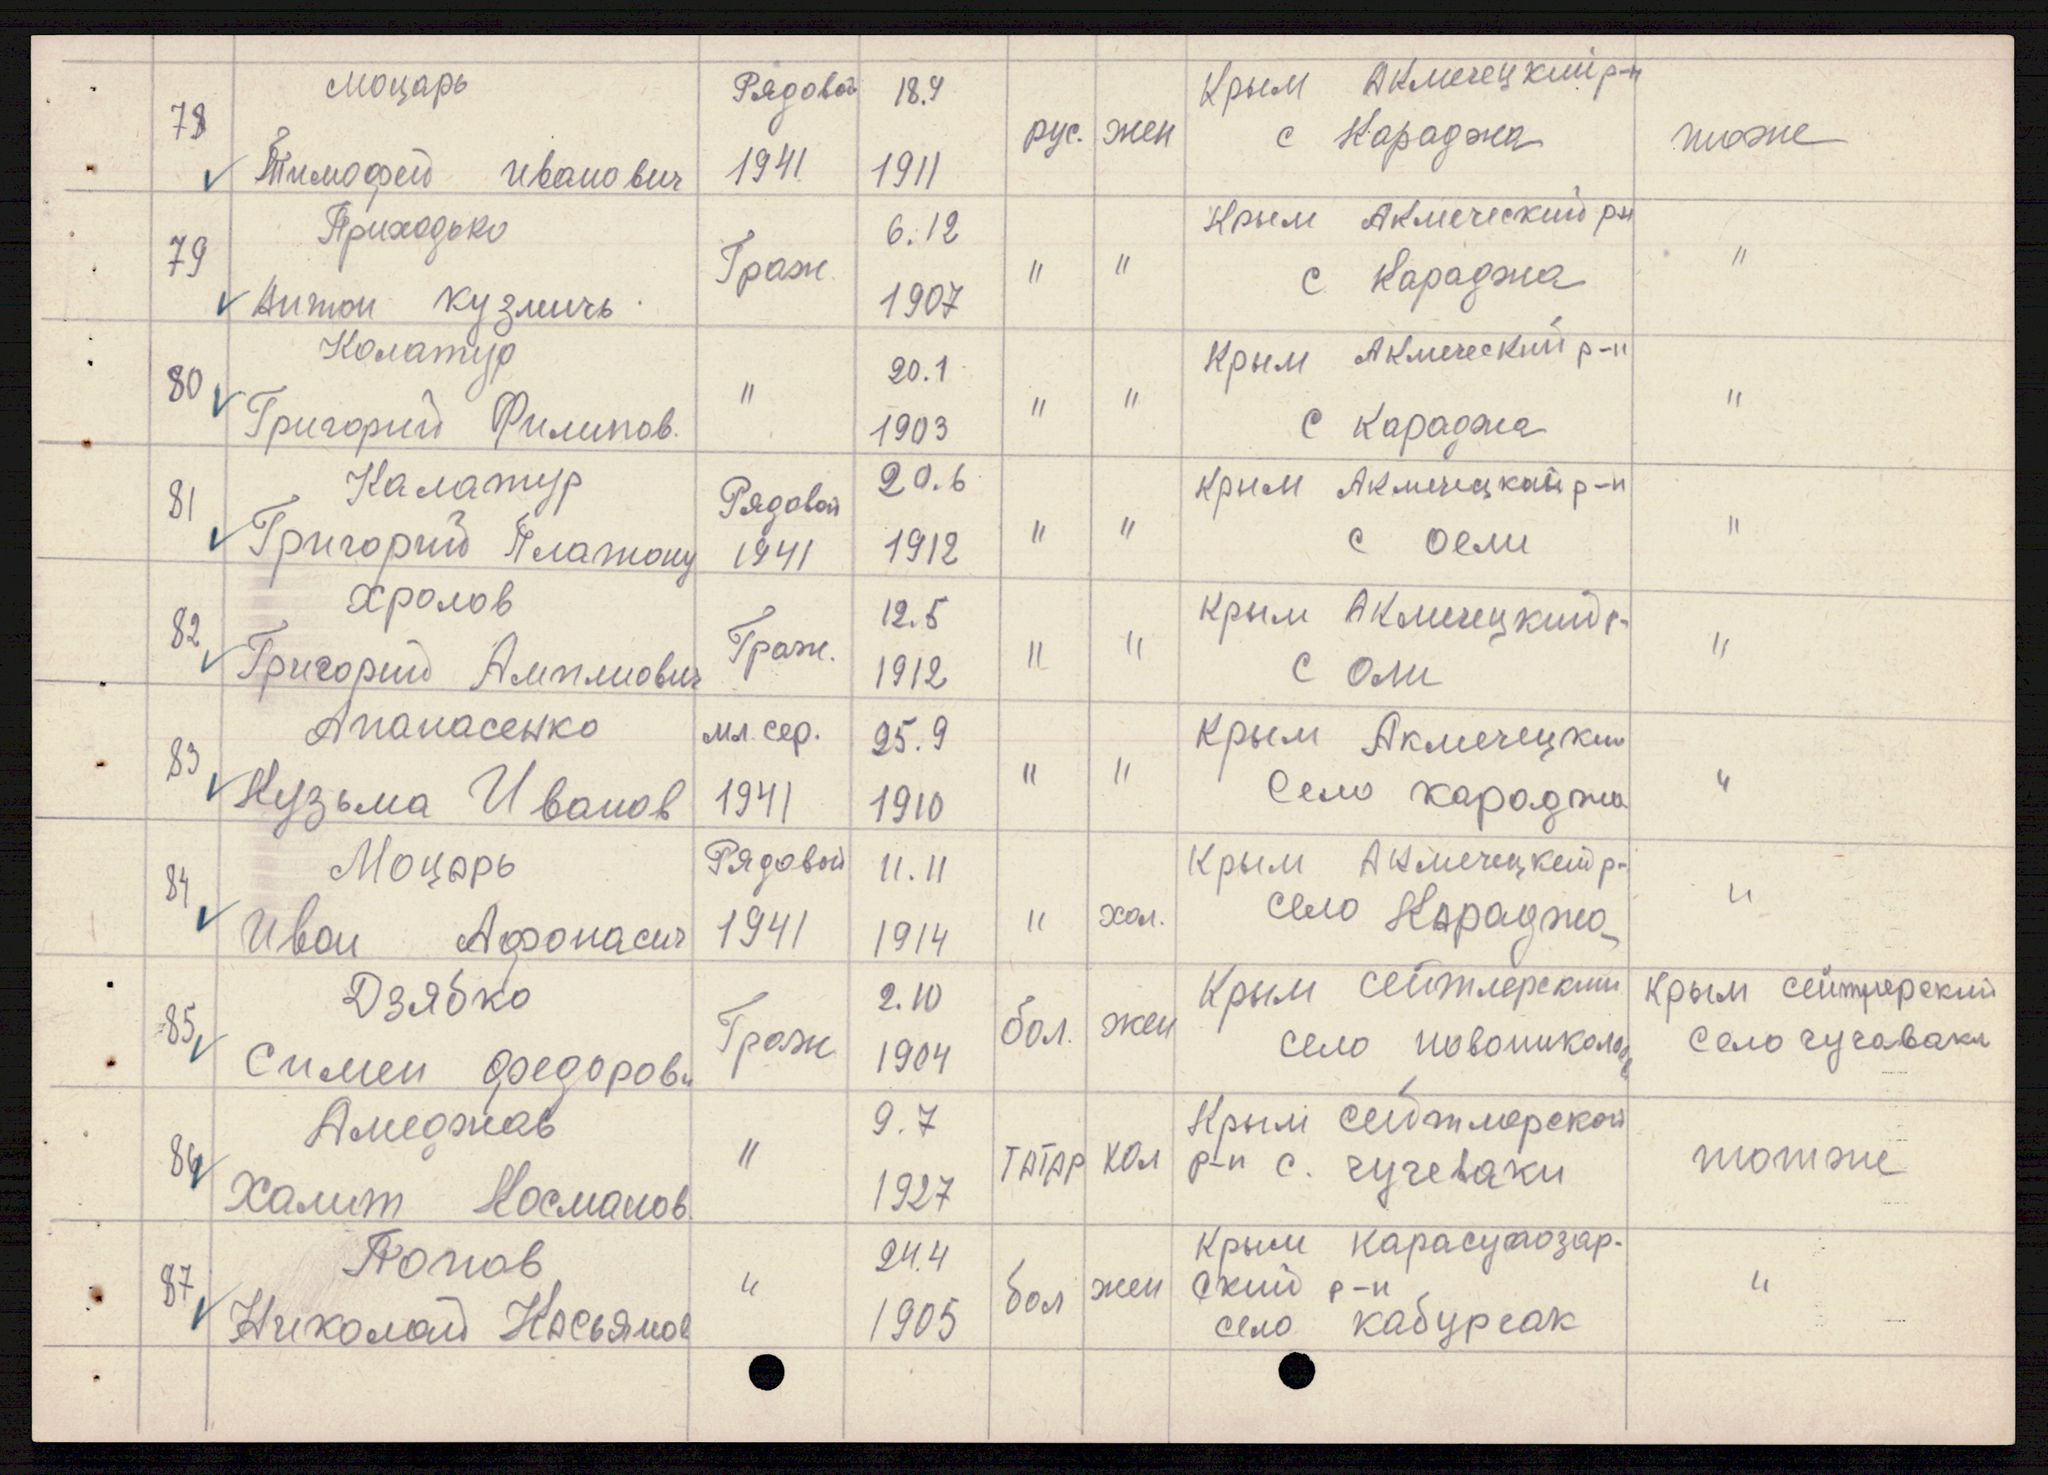 78 Моцарь Рядовой 18.9 рус. жен Крым Акмечецкий р-н тоже
Тимофей Иванович 1941 1911 с Караджа
79 Приходько Граж. 6.12 " " Крым Акмеческий рн "
Антон Кузмичь 1907 с Караджа
80 Колатур " 20.1 " " Крым Акмеческий р-н "
Григорий Филипов. 1903 с Караджа
81 Калатур Рядовой 20.6 " " Крым Акмечецкий р-н "
Григорий Платону 1941 1912 с Оели
82 Хролов Граж. 12.5 " " Крым Акмечецкий р- "
Григорий 1912 с Оли
83 Апанасенко мл. сер. 25.9 " " Крым Акмечецкий "
Кузьма Иванов 1941 1910 Село Караджа
84 Моцарь Рядовой 11.11 " хол. Крым Акмечецкий р- "
Иван Афонасич 1941 1914 село Караджа
85 Дзябко Граж 2.10 бол. жен Крым Сейтлерский Крым Сейтлерский
Симен Федорович 1904 село Село Чучаваки
86 Амеджав " 9.7 татар хол Крым Сейтлерской тотже
Халит Косманов. 1927 р-н с. Чучеваки
87 Попов " 24.4 бол жен Крым Карасубазар- "
Николай Касьянов 1905 ский р-н
село Кабурсак